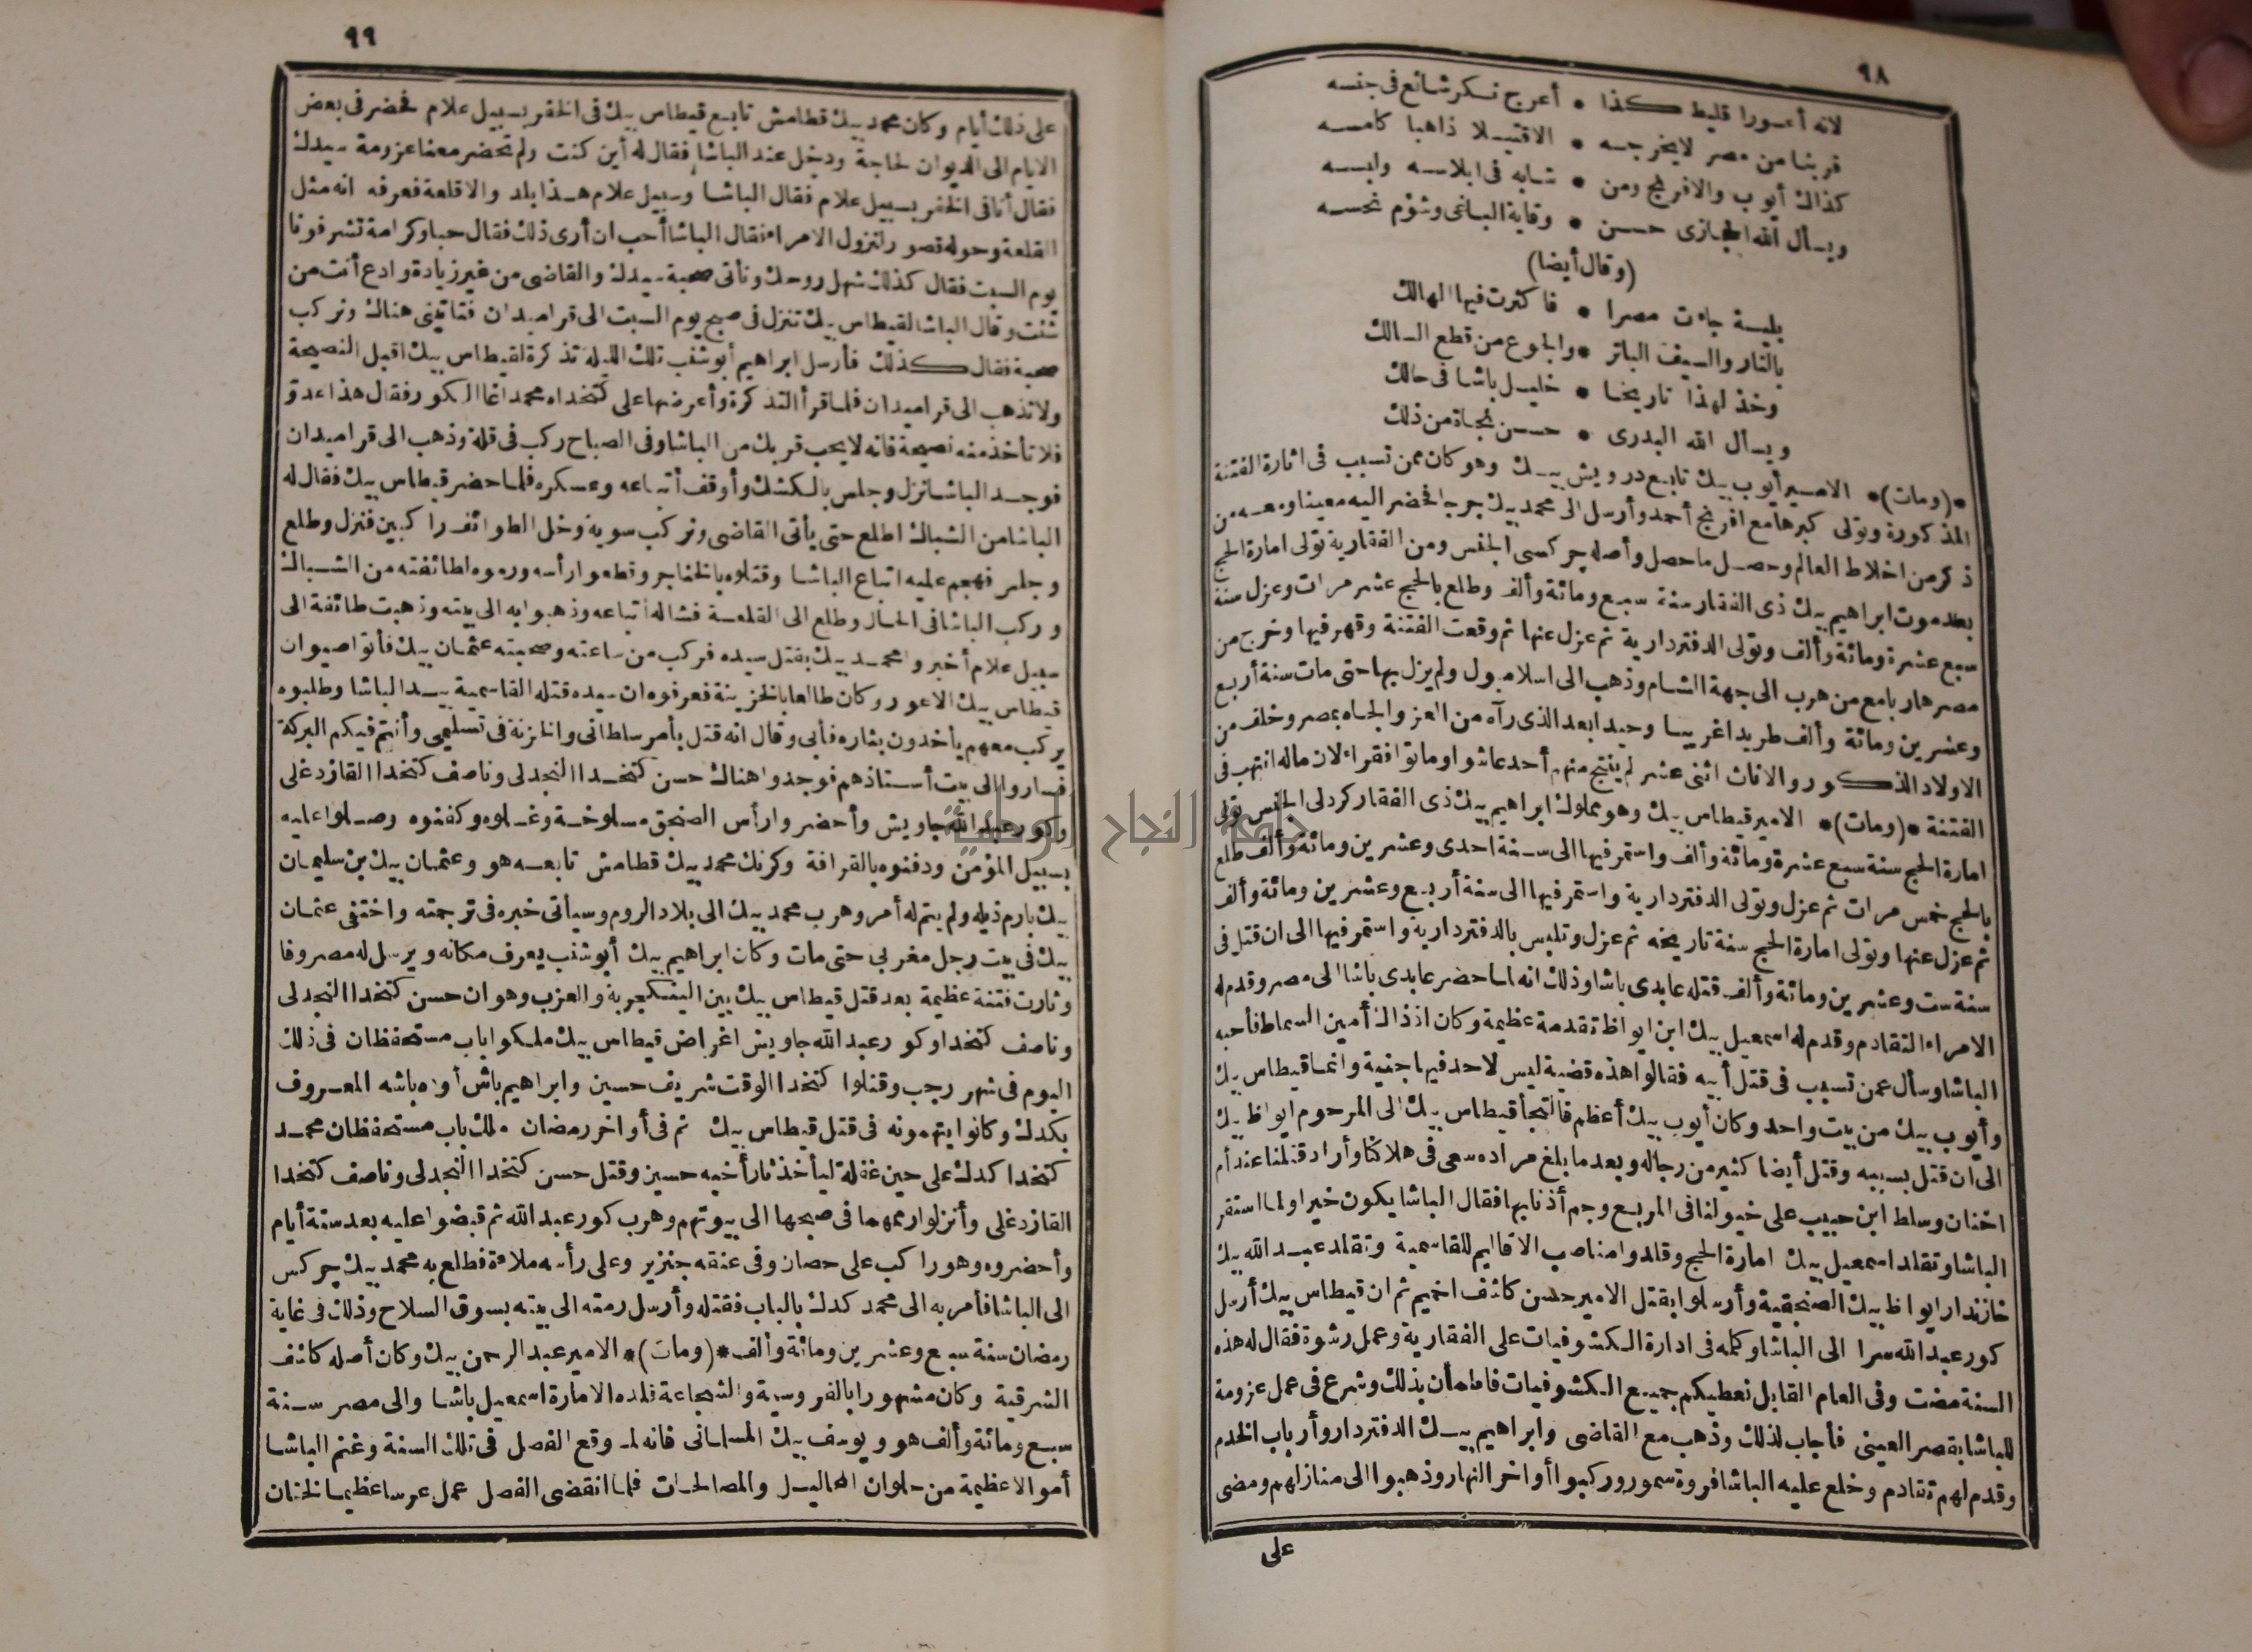 ٩٨
لانه أعورا قليط كذا • أعرج تسكر شائع فى جنسه
قربنا من مصر لا يخرجه • الا قتيلا ذاهبا كامسه
كذاك أيوب والافرنج ومن • شابه فى ابلاسه وابسه
ويسأل الله الحجازى حسن • وقاية الباغى وشؤم نحسه
(وقال أيضا)
بلية جاءت مصرا • فاكثرت فيها الهالك
بالنار والسيف الباتر • والجوع من قطع السالك
وخذ لهذا تاريخا • خليل باشا فى حالك
ويسأل الله البدرى • حسن نجاة من ذلك
*(ومات)* الامير أيوب بيك تابع درويش بيك وهو كان ممن تسبب فى اثارة الفتنة
المذكورة وتولى كبرها مع افرنج أحمد وأرسل الى محمد بيك جرجا فحضر اليه معينا ومعه من
ذكر من اخلاط العالم وحصل ما حصل وأصله جركسى الجنس ومن الفقارية تولى امارة الحج
بعد موت ابراهيم بيك ذى الفقار سنة سبع ومائة وألف وطلع بالحج عشر مرات وعزل سنة
سبع عشرة ومائة وألف وتولى الدفتردارية ثم عزل عنها ثم وقعت الفتنة وقهر فيها وخرج من
مصر هاربا مع من هرب الى جهة الشام وذهب الى اسلامبول ولم يزل بها حتى مات سنة أربع
وعشرين ومائة وألف طريدا غريبا وحيدا بعد الذى رآه من العز والجاه بمصر وخلف من
الاولاد الذكور والاناث اثنى عشر لم ينتج منهم أحد عاشوا وماتوا فقراء لان ماله انتهب فى
الفتنة *(ومات)* الامير قيطاس بيك وهو مملوك ابراهيم بيك ذى الفقار كردلى الجنس تولى
امارة الحج سنة سبع عشرة ومائة وألف واستمر فيها الى سنة احدى وعشرين ومائة وألف طلع
بالحج خمس مرات ثم عزل وتولى الدفتردارية واستمر فيها الى سنة أربع وعشرين ومائة وألف
ثم عزل عنها وتولى امارة الحج سنة تاريخه ثم عزل وتلبس بالدفتردارية واستمر فيها الى ان قتل فى
سنة ست وعشرين ومائة وألف قتله عابدى باشا وذلك انه لما حضر عابدى باشا الى مصر وقدم له
الامراء التقادم وقدم له اسمعيل بيك ابن ايواظ تقدمة عظيمة وكان اذ ذاك أمين السماط فأحبه
الباشا وسأل عمن تسبب فى قتل أبيه فقالوا هذه قضية ليس لاحد فيها جنية وانما قيطاس بيك
وأيوب بيك من بيت واحد وكان أيوب بيك أعظم فالتجأ قيطاس بيك الى المرحوم ايواظ بيك
الى ان قتل بسببه وقتل أيضا كثير من رجاله وبعد ما بلغ مراده سعى فى هلاكنا وأراد قتلنا عند أم
اخنان وسلط ابن حبيب على خيولنا فى المربع وجم أذنابها فقال الباشا يكون خيرا ولما استقر
الباشا وتقلد اسمعيل بيك امارة الحج وقلدوا مناصب الاقاليم للقاسمية وتقلد عبد الله بيك
خازندار ايواظ بيك الصنجقية وأرسلوا بقتل الامير حسن كاشف اخميم ثم ان قيطاس بيك أرسل
كور عبد الله سرا الى الباشا وكلمه فى ادارة الكشوفيات على الفقارية وعمل رشوة فقال له هذه
السنة مضت وفى العام القابل نعطيكم جميع الكشوفيات فاطمأن بذلك وشرع فى عمل عزومة
للباشا بقصر العينى فأجاب لذلك وذهب مع القاضى وابراهيم بيك الدفتردار وأرباب الخدم
وقدم لهم تقادم وخلع عليه الباشا فروة سمور وركبوا أواخر النهار وذهبوا الى منازلهم ومضى
على
٩٩
على ذلك أيام وكان محمد بيك قطامش تابع قيطاس بيك فى الخفر بسبيل علام فحضر فى بعض
الايام الى الديوان لحاجة ودخل عند الباشا فقال له أين كنت ولم تحضر معنا عزومة سيدك
فقال أنا فى الخفر بسبيل علام فقال الباشا وسبيل علام هذا بلد والا قلعة فعرفه انه مثل
القلعة وحوله قصور لتزول الامراء فقال الباشا أحب ان أرى ذلك فقال حبا وكرامة تشرفونا
يوم السبت فقال كذلك شهل روحك وتأتى صحبة سيدك والقاضى من غير زيادة وادع أنت من
شئت وقال الباشا لقيطاس بيك تنزل فى صبح يوم السبت الى قراميدان فتاتينى هناك ونركب
صحبة فقال كذلك فأرسل ابراهيم أبو شنب تلك الليلة تذكرة لقيطاس بيك اقبل النصيحة
ولا تذهب الى قراميدان فلما قرأ التذكرة وأعرضها على كتخداه محمد اغا الكور فقال هذا عدو
فلا تأخذ منه نصيحة فانه لا يحب قربك من الباشا وفى الصباح ركب فى قلة وذهب الى قراميدان
فوجد الباشا نزل وجلس بالكشك وأوقف أتباعه وعسكره فلما حضر قيطاس بيك فقال له
الباشا من الشباك اطلع حتى يأتى القاضى ونركب سوية وخل الطوائف راكبين فنزل وطلع
وجلس فهجم عليه اتباع الباشا وقتلوه بالخناجر وقطعوا رأسه ورموه لطائفته من الشباك
وركب الباشا فى الحال وطلع الى القلعة فشاله أتباعه وذهبوا به الى بيته وذهبت طائفة الى
سبيل علام أخبروا محمد بيك بقتل سيده فركب من ساعته وصحبته عثمان بيك فأتوا صيوان
قيطاس بيك الاعور وكان طالعا بالخزينة فعرفوه ان سيده قتله القاسمية بيد الباشا وطلبوه
يركب معهم يأخذون بثاره فأبى وقال انه قتل بأمر سلطانى والخزنة فى تسليمى وأنتم فيكم البركة
فساروا الى بيت أستاذهم فوجدوا هناك حسن كتخدا النجدلى وناصف كتخدا القازدغلى
وكور عبد الله جاويش وأحضروا رأس الصنجق مسلوخة وغسلوه وكفنوه وصلوا عليه
بسبيل المؤمن ودفنوه بالقرافة وكرنك محمد بيك قطامش تابعه هو وعثمان بيك بن سليمان
بيك بارم ذيله ولم يتم له أمر وهرب محمد بيك الى بلاد الروم وسيأتى خبره فى ترجمته واختفى عثمان
بيك فى بيت رجل مغربى حتى مات وكان ابراهيم بيك أبو شنب يعرف مكانه ويرسل له مصروفا
وثارت فتنة عظيمة بعد قتل قيطاس بيك بين الينكجرية والعزب وهو ان حسن كتخدا النجدلى
وناصف كتخدا وكور عبد الله جاويش اغراض قيطاس بيك ملكوا باب مستحفظان فى ذلك
اليوم فى شهر رجب وقتلوا كتخدا الوقت شريف حسين وابراهيم باش أوده باشه المعروف
بكدك وكانوا يتهمونه فى قتل قيطاس بيك ثم فى أواخر رمضان ملك باب مستحفظان محمد
كتخدا كدك على حين غفلة ليأخذ ثار أخيه حسين وقتل حسن كتخدا النجدلى وناصف كتخدا
القازدغلى وأنزلوا رممهما فى صبحها الى بيوتهم وهرب كور عبد الله ثم قبضوا عليه بعد ستة أيام
وأحضروه وهو راكب على حصان وفى عنقه جنزير وعلى رأسه ملاءة فطلع به محمد بيك جركس
الى الباشا فأمر به الى محمد كدك بالباب فقتله وأرسل رمته الى بيته بسوق السلاح وذلك فى غاية
رمضان سنة سبع وعشرين ومائة وألف *(ومات)* الامير عبد الرحمن بيك وكان أصله كاشف
الشرقية وكان مشهورا بالفروسية والشجاعة قلده الامارة اسمعيل باشا والى مصر سنة
سبع ومائة وألف هو ويوسف بيك المسلمانى فانه لما وقع الفصل فى تلك السنة وغنم الباشا
أموالا عظيمة من حلوان المحاليل والمصالحات فلما انقضى الفصل عمل عرسا عظيما لختان
جامعة النجاح الوطنية